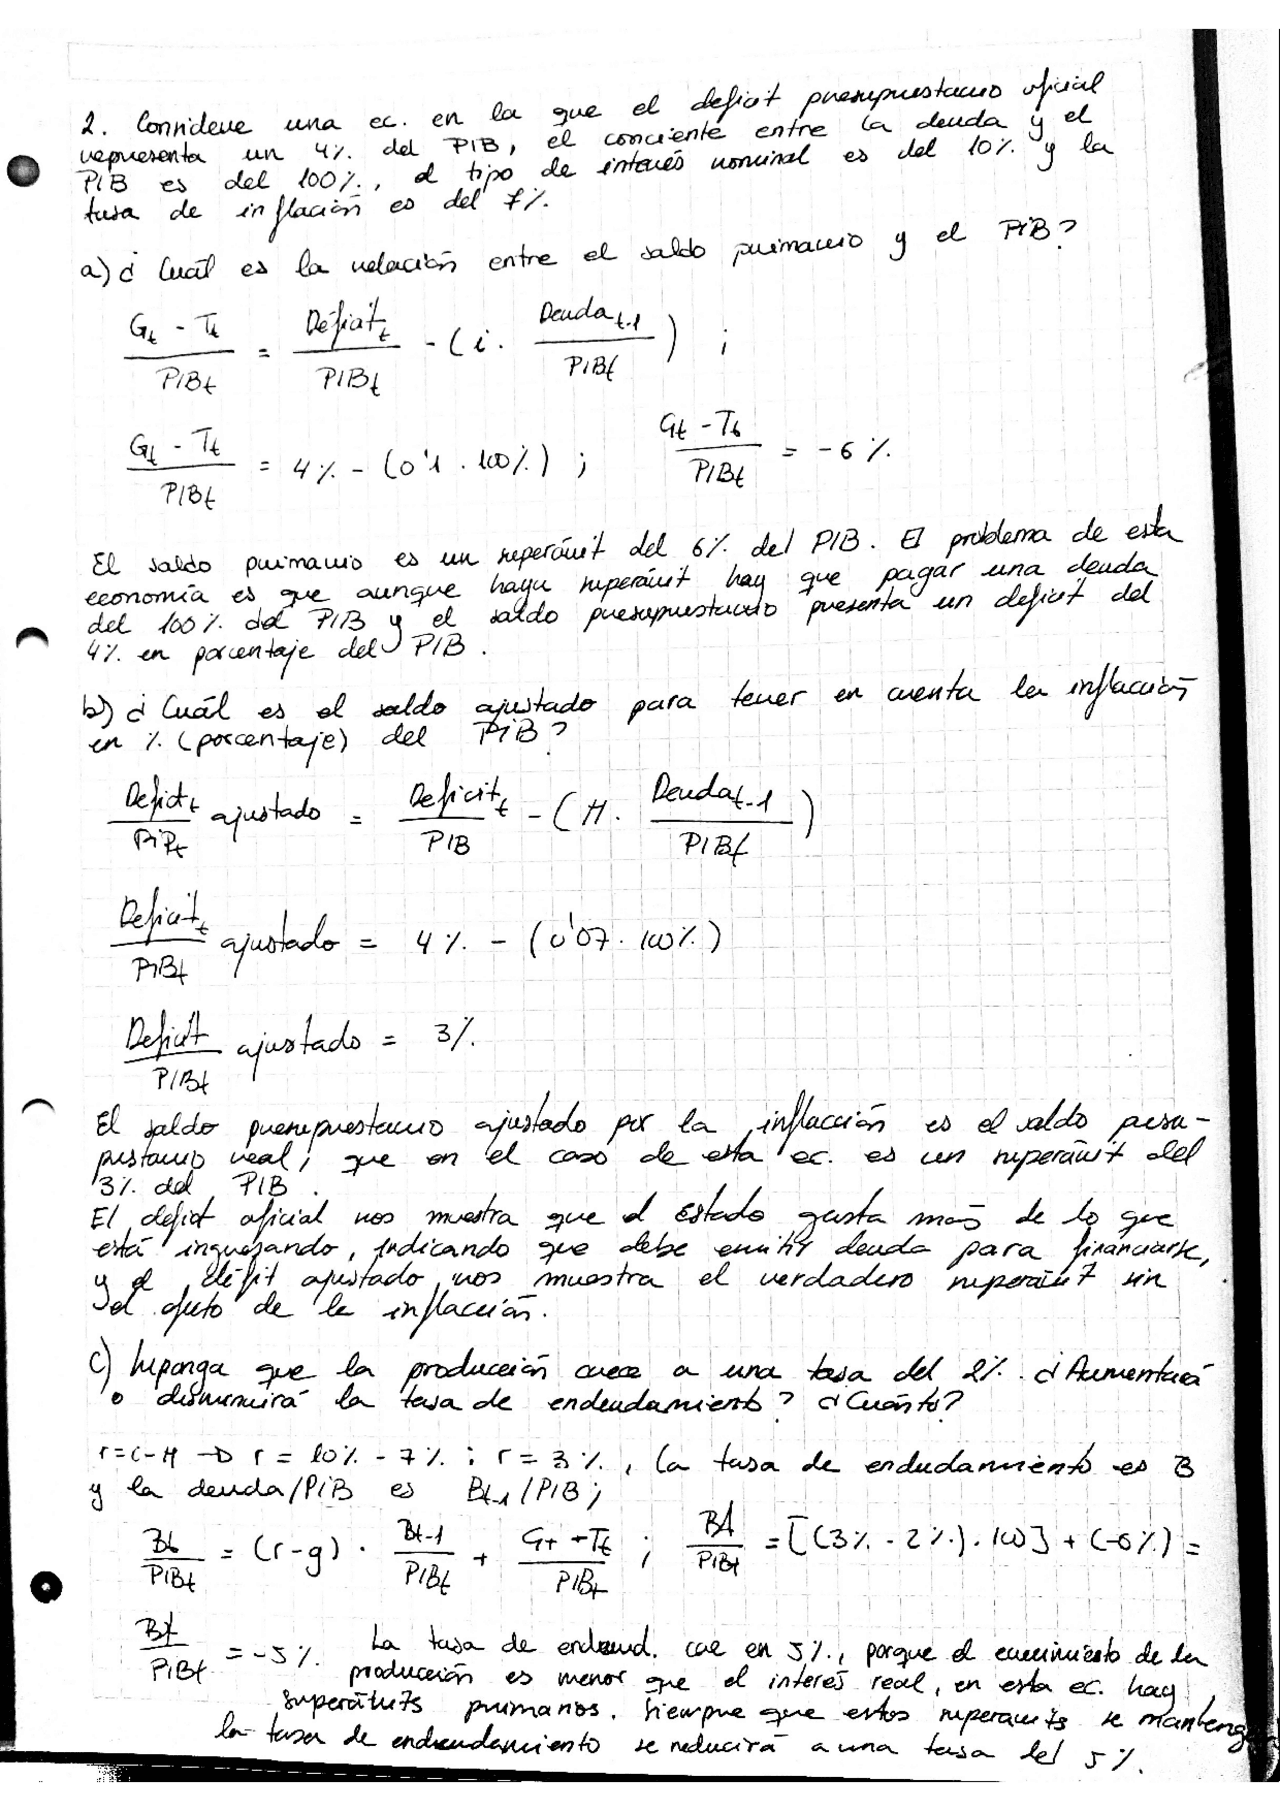 2. Considere una ec. en la que el deficit presupuestario oficial
representa un 4%. del PIB, el conciente entre la deuda y el
PIB es del 100%., el tipo de interés nominal es del 10%. y la
tasa de inflación es del 7%.
a) ¿ Cuál es la relación entre el saldo primario y el PIB?
Gt - Tt / PIBt = Déficit t / PIBt - (i · Deuda t-1 / PIBt) ;
Gt - Tt / PIBt = 4% - (0'1 · 100%) ; Gt - Tt / PIBt = -6%.
El saldo primario es un superávit del 6%. del PIB. El problema de esta
economía es que aunque haya superávit hay que pagar una deuda
del 100%. del PIB y el saldo presupuestario presenta un deficit del
4%. en porcentaje del PIB.
b) ¿ Cuál es el saldo ajustado para tener en cuenta la inflación
en %. (porcentaje) del PIB?
Deficit t / PIBt ajustado = Deficit t / PIB - (π · Deuda t-1 / PIBt)
Deficit t / PIBt ajustado = 4%. - (0'07 · 100%.)
Deficit / PIBt ajustado = 3%.
El saldo presupuestario ajustado por la inflacción es el saldo presu-
pustario real, que en el caso de esta ec. es un superávit del
3%. del PIB.
El deficit oficial nos muestra que el Estado gasta más de lo que
está ingresando, indicando que debe emitir deuda para financiarse,
y el défit ajustado nos muestra el verdadero superávit sin
el efecto de la inflacción.
c) Suponga que la producción crece a una tasa del 2%. ¿Aumentará
o disminuirá la tasa de endeudamiento? ¿Cuánto?
r=i-π → r = 10%. - 7%. ; r = 3%., la tasa de endudamiento es B
y la deuda/PIB es Bt-1/PIB;
Bt / PIBt = (r-g) · Bt-1 / PIBt + Gt + Tt / PIBt ; Bt / PIBt = [(3%. - 2%.) · 100] + (-6%.) =
Bt / PIBt = -5%. La tasa de endeud. cae en 5%., porque el crecimiento de la
producción es menor que el interés real, en esta ec. hay
superávits primarios. Siempre que estos superavits se mantenga
la tasa de endeudamiento se reducirá a una tasa del 5%.